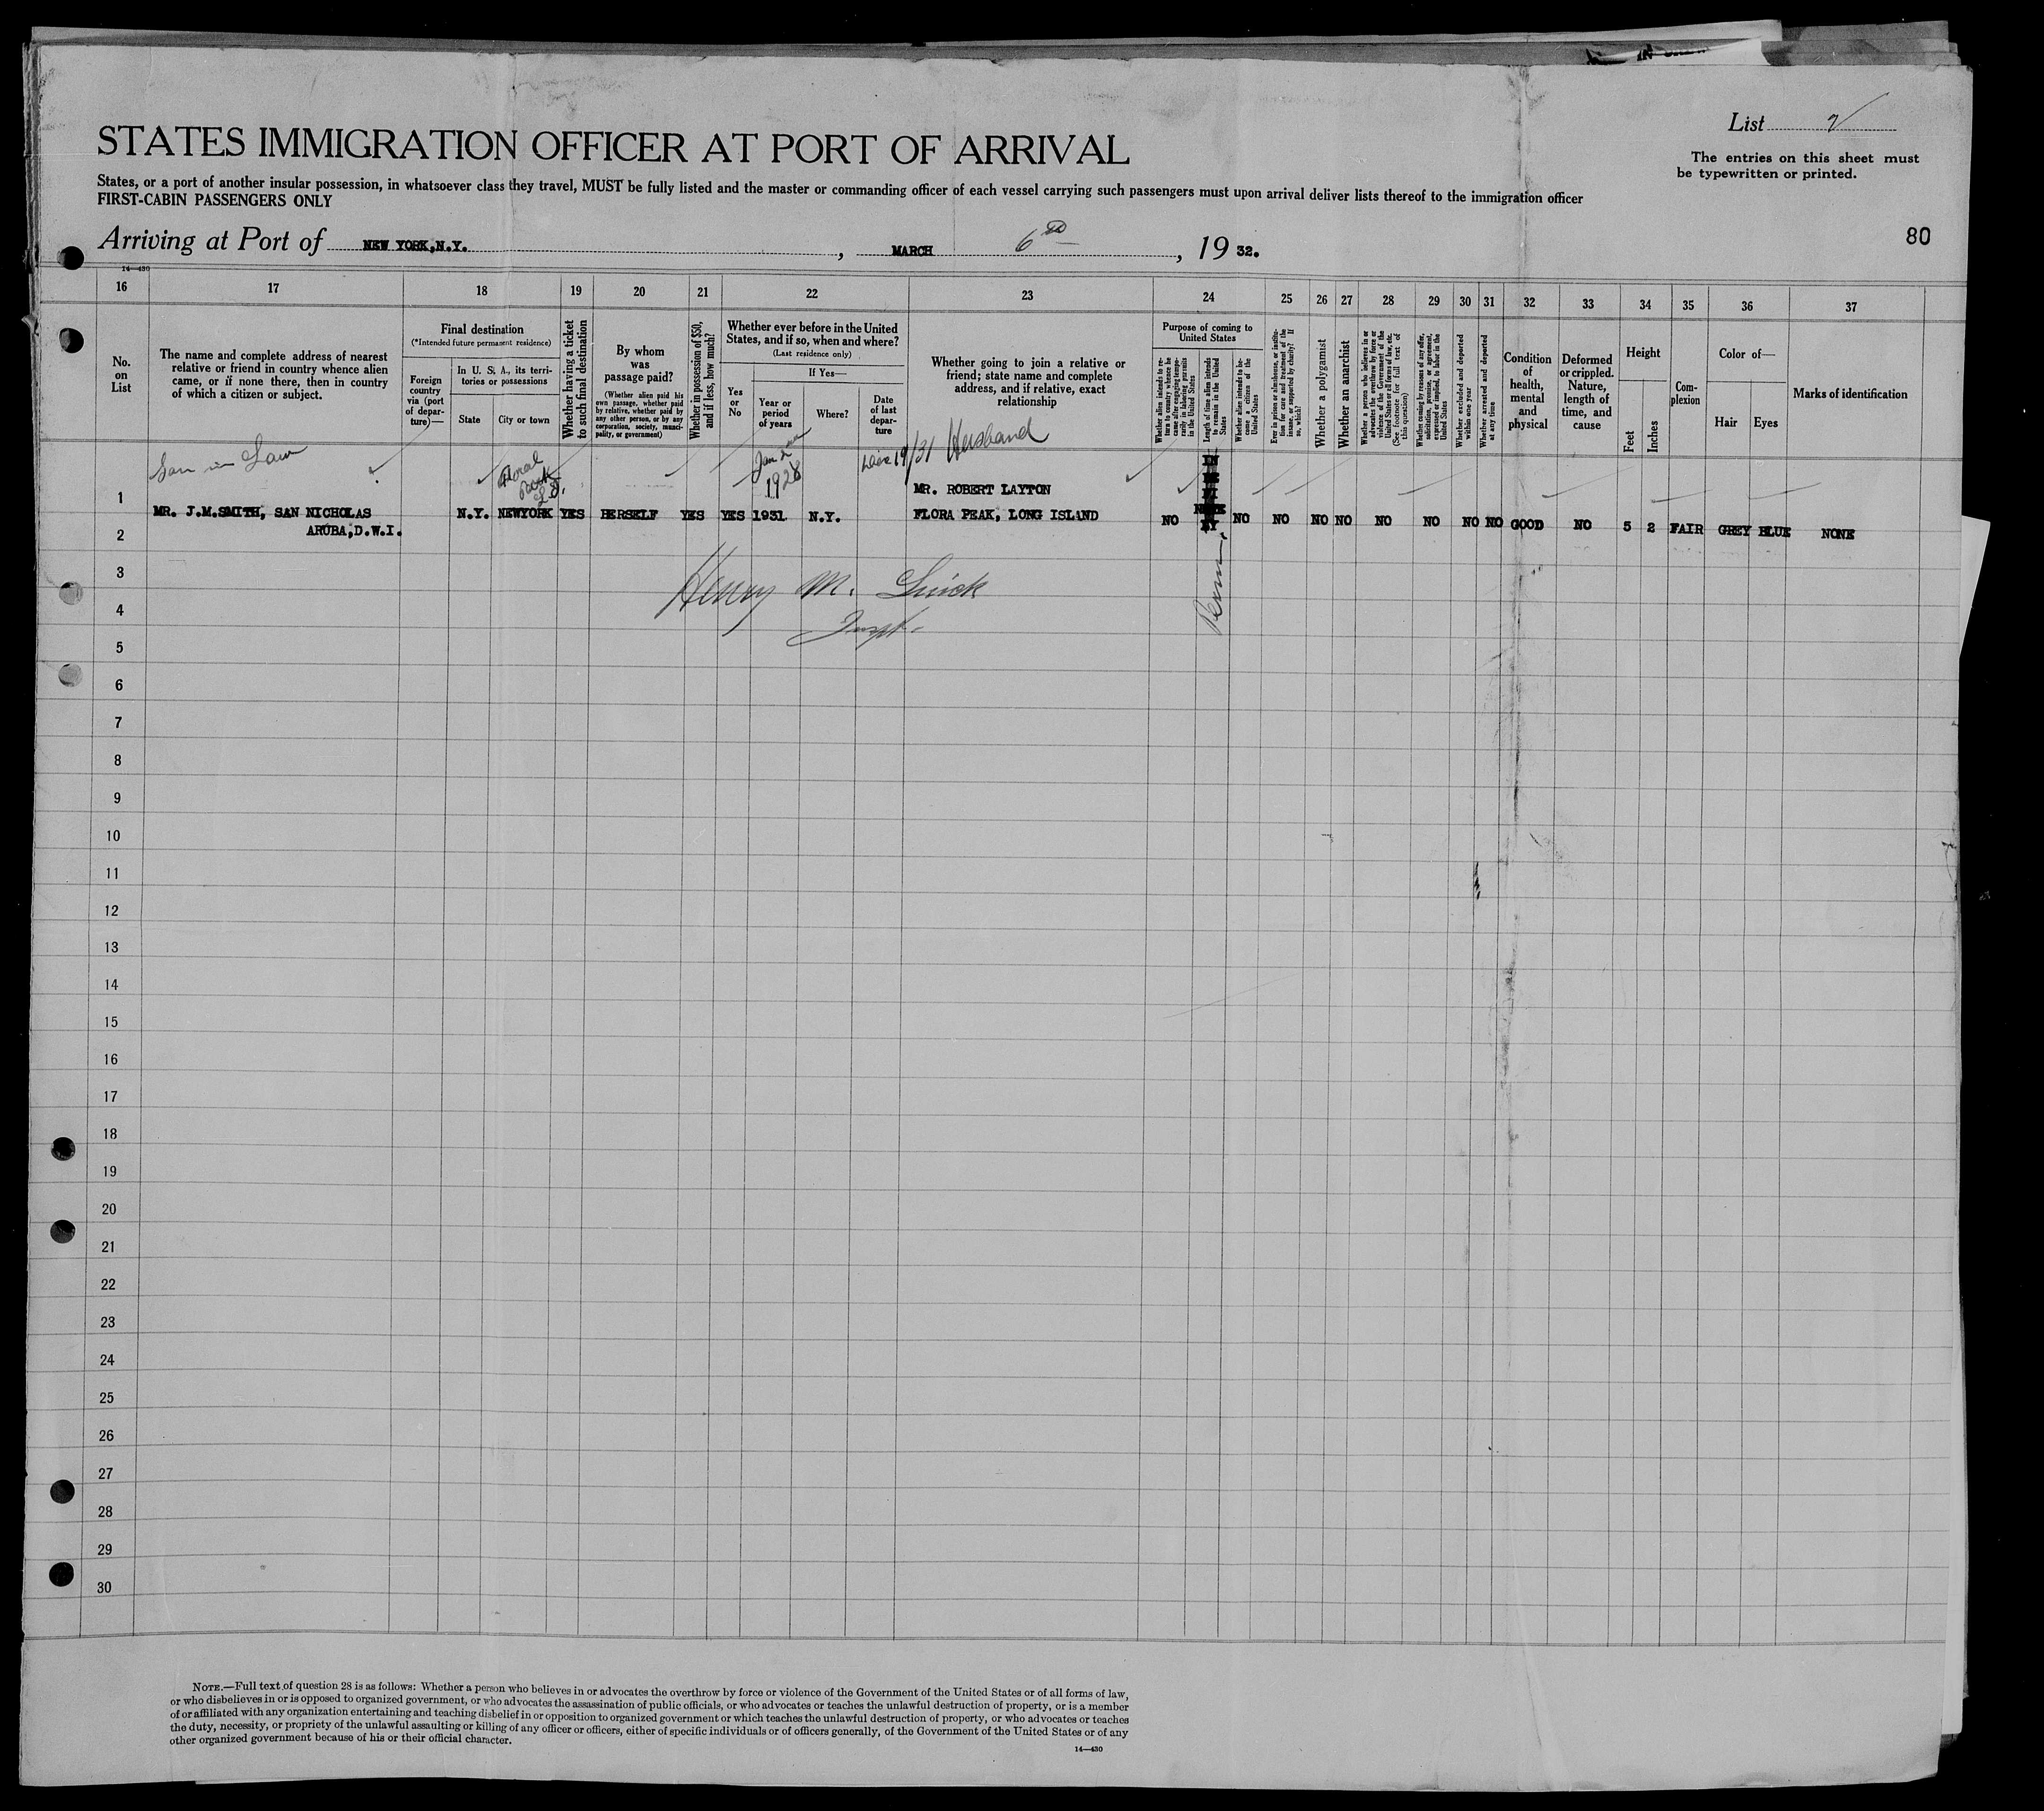 STATES IMMIGRATION OFFICER AT PORT OF ARRIVAL
List
The entries on this sheet must
be typewritten or printed.
States, or a port of another insular possession, in whatsoever class they travel, MUST be fully listed and the master or commanding officer of each vessel carrying such passengers must upon arrival deliver lists thereof to the immigration officer
FIRST-CABIN PASSENGERS ONLY
Arriving at Port of NEW YORK,N.Y., MARCH 6, 19 32.
80
14—430
16 17 18 19 20 21 22 23 24 25 26 27 28 29 30 31 32 33 34 35 36 37
No.
on
List
The name and complete address of nearest
relative or friend in country whence alien
came, or if none there, then in country
of which a citizen or subject.
Final destination
(*Intended future permanent residence)
Foreign
country
via (port
of depar-
ture)—
In U. S. A., its terri-
tories or possessions
State
City or town
Whether having a ticket
to such final destination
By whom
was
passage paid?
(Whether alien paid his
own passage, whether paid
by relative, whether paid by
any other person, or by any
corporation, society, munici-
pality, or government)
Whether in possession of $50,
and if less, how much?
Whether ever before in the United
States, and if so, when and where?
(Last residence only)
Yes
or
No
If Yes—
Year or
period
of years
Where?
Date
of last
depar-
ture
Whether going to join a relative or
friend; state name and complete
address, and if relative, exact
relationship
Purpose of coming to
United States
Whether alien intends to re-
turn to country whence he
came after engaging tempo-
rarily in laboring pursuits
in the United States
Length of time alien intends
to remain in the United
States
Whether alien intends to be-
come a citizen of the
United States
Ever in prison or almshouse, or institu-
tion for care and treatment of the
insane, or supported by charity? If
so, which?
Whether a polygamist
Whether an anarchist
Whether a person who believes in or
advocates the overthrow by force or
violence of the Government of the
United States or all forms of law, etc.
(See footnote for full text of
this question)
Whether coming by reasons of any offer,
solicitation, promise, or agreement,
expressed or implied, to labor in the
United States
Whether excluded and deported
within one year
Whether arrested and deported
at any time
Condition
of
health,
mental
and
physical
Deformed
or crippled.
Nature,
length of
time, and
cause
Height
Feet
Inches
Com-
plexion
Color of—
Hair
Eyes
Marks of identification
Son in Law
Floral
Park
L.I.
Jan 2
1928
19/31
Husband
1
MR. ROBERT LAYTON
MR. J.M.SMITH, SAN NICHOLAS N.Y. NEWYORK YES HERSELF YES YES 1931 N.Y. FLORA PEAK, LONG ISLAND NO NO NO NO NO NO NO NO NO GOOD NO 5 2 FAIR GREY BLUE NONE
2
ARUBA,D.W.I.
Perm.
3
Henry M.
4
Inspt.
5
6
7
8
9
10
11
12
13
14
15
16
17
18
19
20
21
22
23
24
25
26
27
28
29
30
NOTE.—Full text of question 28 is as follows: Whether a person who believes in or advocates the overthrow by force or violence of the Government of the United States or of all forms of law,
or who disbelieves in or is opposed to organized government, or who advocates the assassination of public officials, or who advocates or teaches the unlawful destruction of property, or is a member
of or affiliated with any organization entertaining and teaching disbelief in or opposition to organized government or which teaches the unlawful destruction of property, or who advocates or teaches
the duty, necessity, or propriety of the unlawful assaulting or killing of any officer or officers, either of specific individuals or of officers generally, of the Government of the United States or of any
other organized government because of his or their official character.
14—430